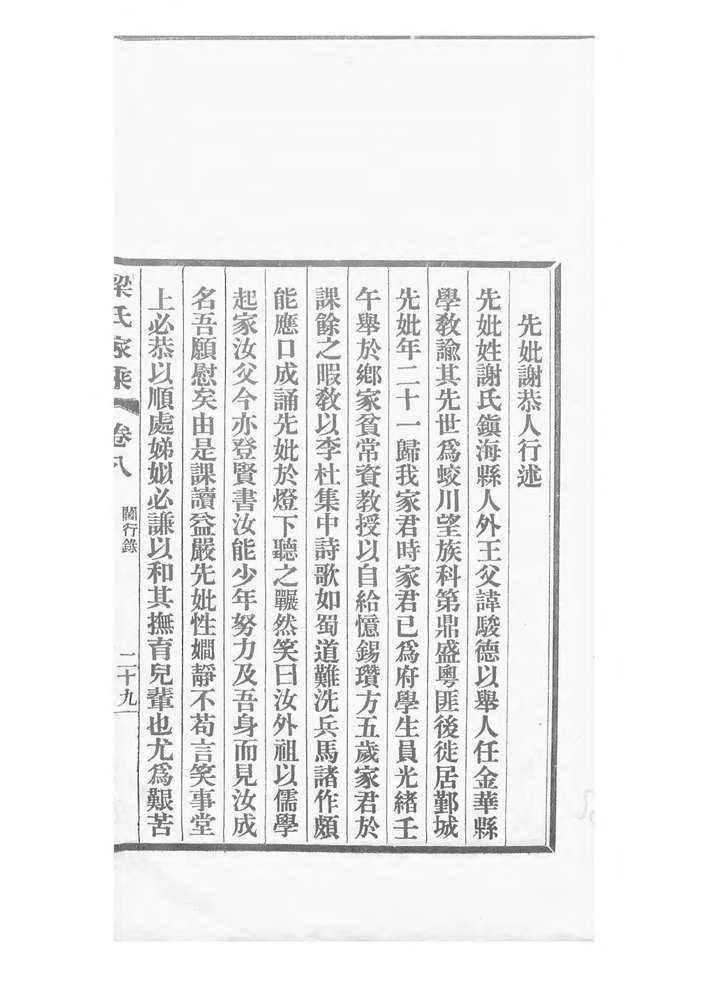 先妣謝恭人行述
先妣姓謝氏鎭海縣人外王父諱駿德以舉人任金華縣
學敎諭其先世爲蛟川望族科第鼎盛粵匪後徙居鄞城
先妣年二十一歸我家君時家君已爲府學生員光緖壬
午舉於鄕家貧常資敎授以自給憶錫瓚方五歲家君於
課餘之暇敎以李杜集中詩歌如蜀道難洗兵馬諸作頗
能應口成誦先妣於燈下聽之囅然笑曰汝外祖以儒學
起家汝父今亦登賢書汝能少年努力及吾身而見汝成
名吾願慰矣由是課讀益嚴先妣性嫺靜不苟言笑事堂
上必恭以順處娣姒必謙以和其撫育兒輩也尤爲艱苦
梁氏家乘 卷八 閫行錄 二十九